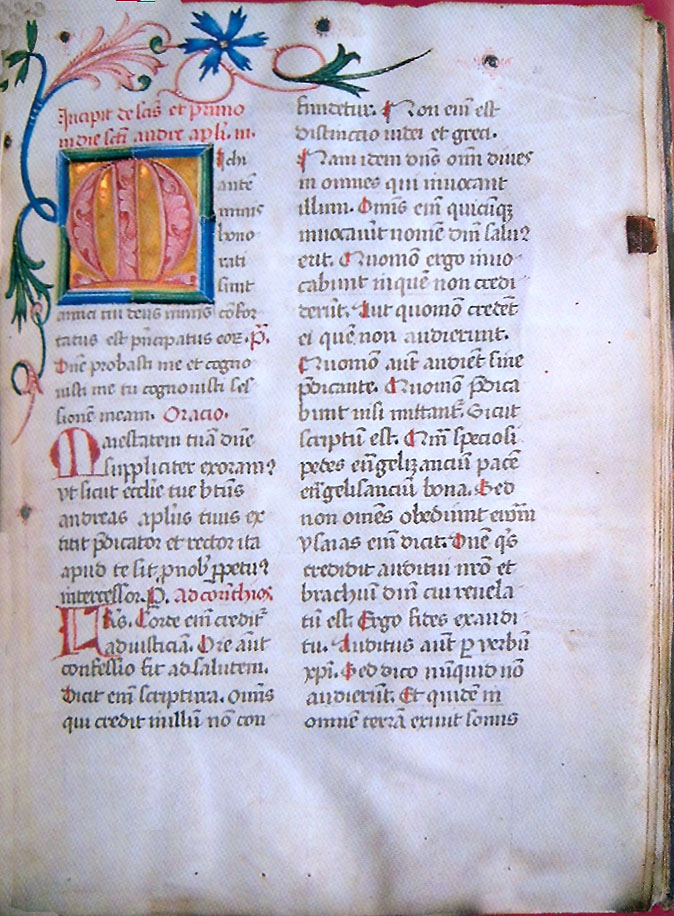 Incipit de scis et primo
in die scti andre apli. m.
M ichi
autē
nimis
hono
rati
sunt
amici tui deus nimis cōfor
tatus est pͥncipatus eoꝝ. P̄.
Dn̄e probasti me et cogno
uisti me tu cognouisti ses
sionē meam. Oracio.
Maiestatem tuā dn̄e
suppliciter exoram᾿
vt sicut ecclīe tue b̄tus
andreas aplūs tuus ex
titit p̄dicator et rector ita
apud te sit p̄ nob̄ ꝑpetu᾿
intercessor. P. Ad corinthios
Fr̄s. Corde enī creditᷣ
ad iusticiā. Ore aūt
confessio fit ad salutem.
Dicit enī scriptura. Om̄s
qui credit in illū nō con
fundetur. Non enī est
distinctio iudei et greci.
Nam idem dn̄s om̄ diues
in omnes qui inuocant
illum. Om̄s enī quicūqꝫ
inuocauīt nomē dn̄i salu᾿
erit. Quomō ergo inuo
cabunt in quē non credi
derūt. Aut quomō credēt
ei quē non audierunt.
Quomō aūt audiēt sine
p̄dicante. Quomō p̄dica
bunt nisi mittantᷣ. Sicut
scriptū est. Q̄m speciosi
pedes euāgelizanciū pacē
euāgelisanciū bona. Sed
non omēs obediunt euāgͦ
ysaias enī dicit. Dn̄e qͥs
credidit auditui nr̄o et
brachium dn̄i cui reuela
tū est. Ergo fides ex audi
tu. Auditus aūt ꝑ verbū
xp̄i. Sed dico nūquid nō
audierūt. Et quidē in
omnē terrā exiuit sonus